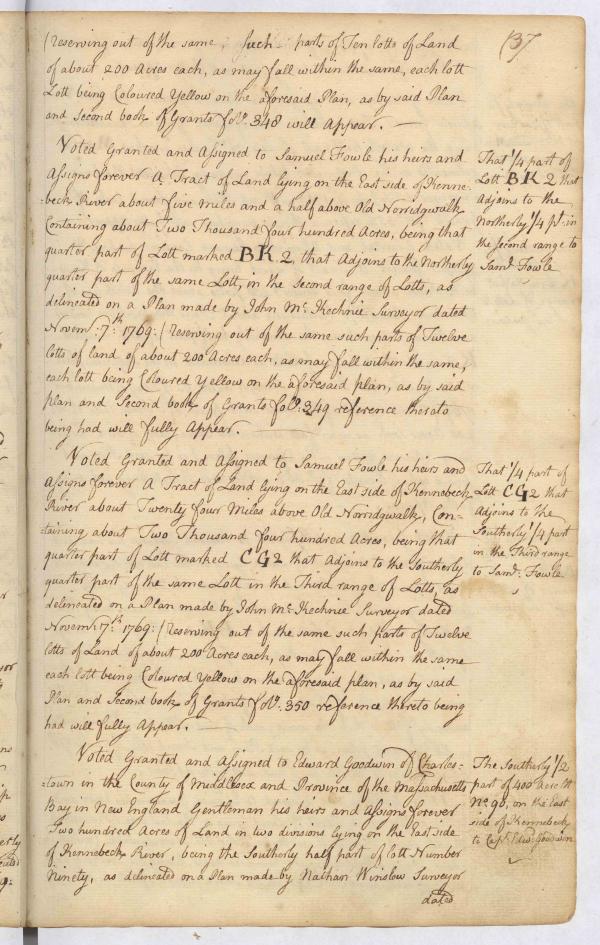 137
(reserving out of the same, such parts of Ten lotts of Land
of about 200 Acres each, as may fall within the same, each lott
Lott being Coloured Yellow on the aforesaid Plan, as by said Plan
and Second book of Grants fol.o 348 will Appear. —
Voted Granted and Assigned to Samuel Fowle his heirs and
Assigns forever A Tract of Land lying on the East side of Kenne=
=beck River about five Miles and a half above Old Norridgwalk
Containing about Two Thousand four hundred Acres, being that
quarter part of Lott marked BK 2, that Adjoins to the Northerly
quarter part of the same Lott, in the Second range of Lotts, as
delineated on a Plan made by John Mc. Kechnie Surveyor dated
Novem.r 7.th 1769: (reserving out of the same such parts of Twelve
lotts of land of about 200 Acres each, as may fall within the same,
each lott being Coloured Yellow on the aforesaid plan, as by said
plan and Second book of Grants fol.o 349 reference thereto
being had will fully Appear. —
That 1/4 part of
Lott BK 2 that
Adjoins to the
Northerly 1/4 p.t in
the second range to
Sam.l Fowle
Voted Granted and Assigned to Samuel Fowle his heirs and
Assigns forever A Tract of Land lying on the East side of Kennebeck
River about Twenty four Miles above Old Norridgwalk, Con=
=taining about Two Thousand four hundred Acres, being that
quarter part of Lott marked CG2 that Adjoins to the Southerly
quarter part of the same Lott in the Third range of Lotts, as
delineated on a Plan made by John Mc. Kechnie Surveyor dated
Novem.r 7.th 1769: (reserving out of the same such parts of Twelve
lotts of Land of about 200 Acres each, as may fall within the same
each lott being Coloured Yellow on the aforesaid plan, as by said
Plan and Second book of Grants fol.o 350 reference thereto being
had will fully Appear. —
That 1/4 part of
Lott CG2 that
Adjoins to the
Southerly 1/4 part
in the Third range
to Sam.l Fowle
Voted Granted and Assigned to Edward Goodwin of Charles=
=town in the County of Middlesex and Province of the Massachusetts
Bay in New England Gentleman his heirs and Assigns forever
Two hundred Acres of Land in two divisions lying on the East side
of Kennebeck River, being the Southerly half part of lott Number
Ninety, as delineated on a Plan made by Nathan Winslow Surveyor
dated
The Southerly 1/2
part of 400 Acre lott
No. 90, on the East
side of Kennebeck
to Cap.t Edw.d Goodwin